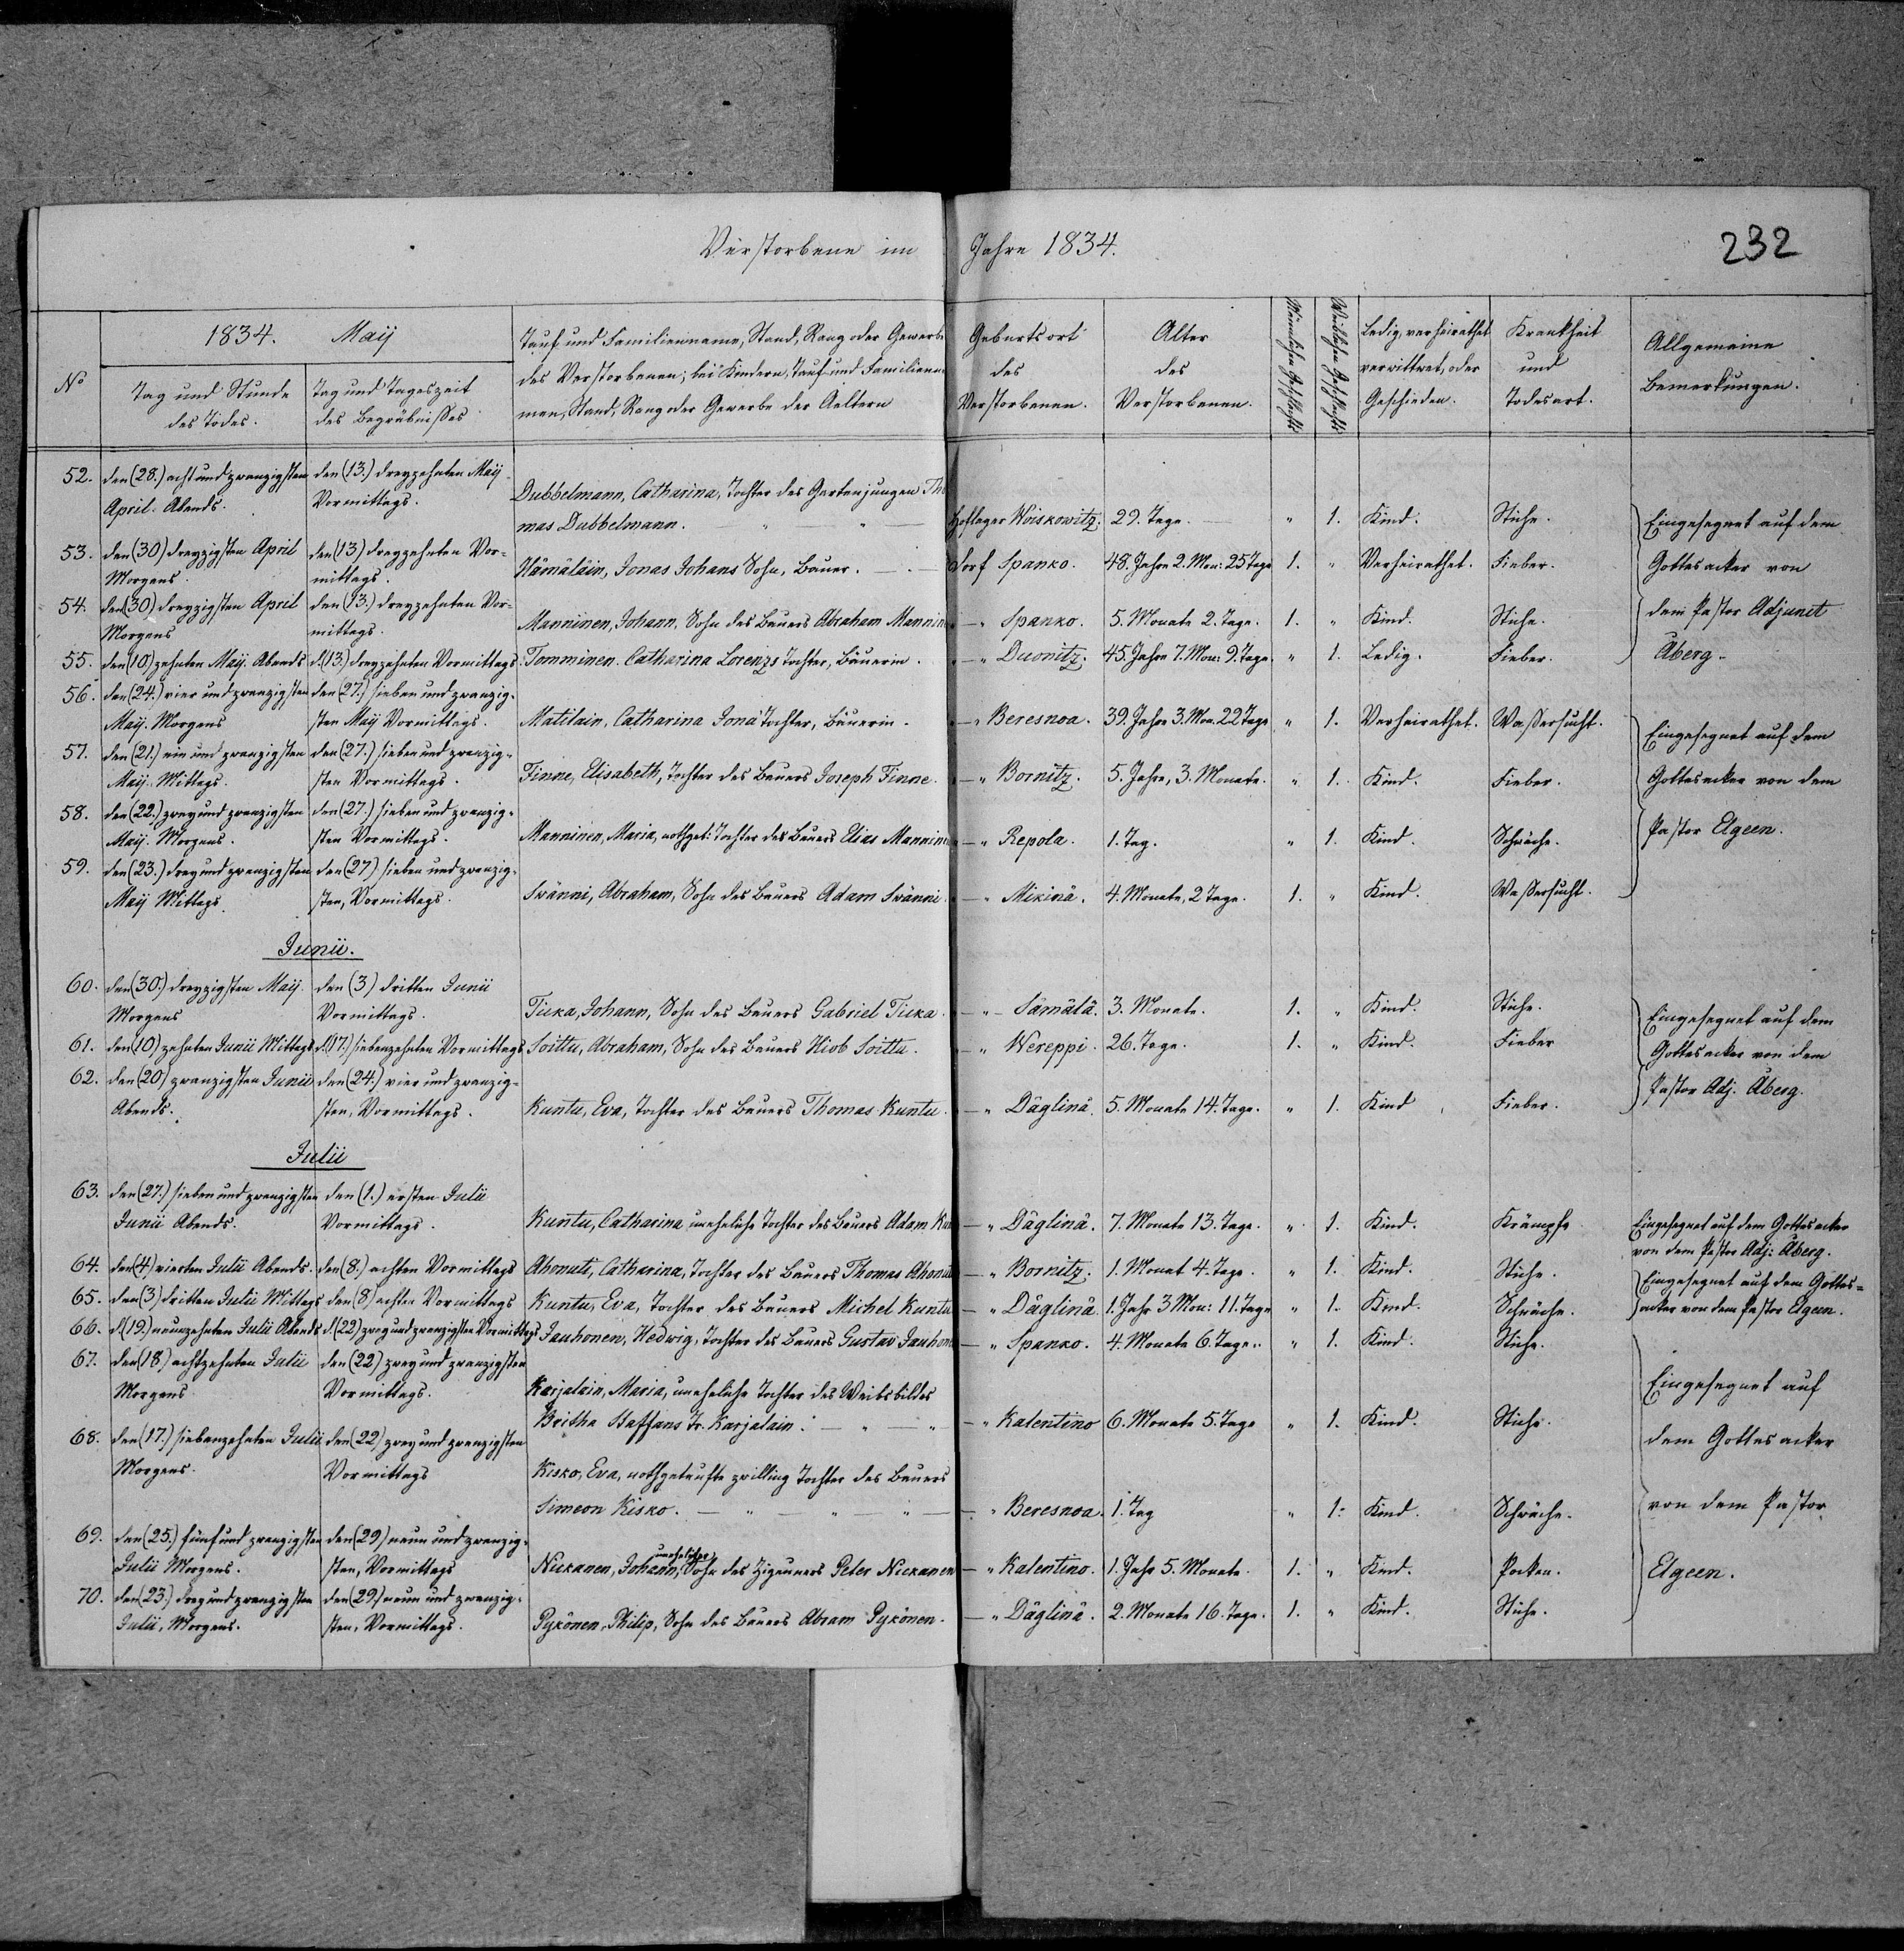 Verstorbene im Jahre 1834.
232
No
1834. Maij
Tag und Stunde des Todes.
Tag und Tageszeit des Begräbnißes
Tauf und Familienname, Stand, Rang oder Gewerbe
des Verstorbenen; bei Kindern, Tauf und Familienna
men, Stand, Rang oder Gewerbe der Aeltern
Geburtsort des Verstorbenen.
Alter des Verstorbenen.
Männlichen Geschlechts
Weiblichen Geschlechts
Ledig, verheirathet verwittwet, oder Geschieden.
Krankheit und Todesart.
Allgemeine Bemerkungen.
52. den (28.) acht und zwanzigsten April. Abends. den (13.) dreyzehnten Maij Vormittags. Dubbelmann, Catharina, Tochter des Gartenjungen Tho
mas Dubbelmann. Hoflager Woiskowitz. 29. Tage. " 1. Kind. Stiche.
53. den (30) dreyzigsten April Morgens. den (13) dreyzehnten Vor=mittags. Hämäläin, Jonas Johans Sohn, Bauer. Dorf Spanko. 48. Jahre 2. Mon: 25 Tage 1. " Verheirathet. Fieber.
54. den (30) dreyzigsten April Morgens den (13.) dreyzehnten Vor=mittags. Manninen, Johann, Sohn des Bauers Abraham Mannin — " Spanko. 5. Monate 2. Tage. 1. " Kind. Stiche.
55. den (10) zehnten Maij. Abends d. (13.) dreyzehnten Vormittags. Tomminen. Catharina Lorenzs Tochter, Bäuerin. — " Duonitz. 45. Jahre 7. Mon: 9. Tage. " 1. Ledig. Fieber.
Eingesegnet auf dem
Gottesacker von
dem Pastor Adjunct
Åberg.
56. den (24.) vier und zwanzigsten Maij. Morgens den (27.) sieben und zwanzig=sten Maij Vormittags. Matilain, Catharina Jona Tochter, Bäuerin. — " Beresnoa. 39. Jahre 3. Mon. 22 Tage " 1. Verheirathet. Waßersucht.
57. den (21.) ein und zwanzigsten Maij. Mittags. den (27.) sieben und zwanzig=sten Vormittags. Finne, Elisabeth, Tochter des Bauers Joseph Finne. — " Bornitz. 5. Jahre, 3. Monate. " 1. Kind. Fieber.
58. den (22.) zwey und zwanzigsten Maij. Morgens. den (27.) sieben und zwanzig=sten Vormittags. Manninen, Maria, nothget: Tochter des Bauers Elias Mannine — " Repola. 1. Tag. " 1. Kind. Schwäche.
59. den (23.) drey und zwanzigsten Maij Mittags. den (27) sieben und zwanzig=sten, Vormittags. Swänni, Abraham, Sohn des Bauers Adam Swänni. — " Mikinä. 4. Monate, 2 Tage. 1. " Kind. Waßersucht.
Eingesegnet auf dem
Gottesacker von dem
Pastor Elgeen.
Junii.
60. den (30.) dreyzigsten Maij. Morgens den (3) dritten Junii Vormittags. Tiika, Johann, Sohn des Bauers Gabriel Tiika. — " Sämälä. 3. Monate. 1. " Kind. Stiche.
61. den (10) zehnten Junii Mittags d. (17.) siebenzehnten Vormittags Soittu, Abraham, Sohn des Bauers Hiob Soittu. — " Wereppi. 26. Tage. 1. " Kind. Fieber
62. den (20) zwanzigsten Junii Abends. den (24.) vier und zwanzig=sten, Vormittags. Kuntu, Eva, Tochter des Bauers Thomas Kuntu. — " Däglinä. 5. Monate 14. Tage. " 1. Kind Fieber.
Eingesegnet auf dem
Gottesacker von dem
Pastor Adj. Åberg.
Julii
63. den (27.) sieben und zwanzigsten Junii Abends. den (1.) ersten Julii Vormittags. Kuntu, Catharina, uneheliche Tochter des Bauers Adam Kun — " Däglinä. 7. Monate 13. Tage. " 1. Kind. Krämpfe Eingesegnet auf dem Gottesacker
von dem Pastor Adj: Åberg.
64. den (4) vierten Julii Abends. den (8.) achten Vormittags Ahonuti, Catharina, Tochter des Bauers Thomas Ahonu — " Bornitz. 1. Monat 4. Tage. " 1. Kind. Stiche.
65. den (3) dritten Julii Mittags den (8) achten Vormittags Kuntu, Eva, Tochter des Bauers Michel Kuntu — " Däglinä. 1. Jahr 3 Mon: 11. Tage " 1. Kind. Schwäche.
Eingesegnet auf dem Gottes=
acker von dem Pastor Elgeen.
66. d. (19.) neunzehnten Julii Abends d. (22) zwey und zwanzigsten Vormittags Jauhonen, Hedwig, Tochter des Bauers Gustav Jauhone — " Spanko. 4. Monate 6. Tage. " 1. Kind. Stiche.
67. den (18) achtzehnten Julii Morgens den (22) zwey und zwanzigsten Vormittags. Karjalain, Maria, uneheliche Tochter des Weibsbildes
Britha Staffans Tr. Karjalain. — " Kalentino 6. Monate 5. Tage " 1. Kind. Stiche.
68. den (17.) siebenzehnten Julii Morgens. den (22) zwey und zwanzigsten Vormittags Kisko, Eva, nothgetaufte zwilling Tochter des Bauers
Simeon Kisko. — " Beresnoa. 1. Tag " 1. Kind. Schwäche.
69. den (25.) fünf und zwanzigsten Julii Morgens. den (29) neun und zwanzig=sten, Vormittags Nickanen, Johann, unehelicher Sohn des Zigeuners Peter Nickanen — " Kalentino. 1. Jahr 5. Monate. 1. " Kind. Pocken.
70. den (23.) drey und zwanzigsten Julii, Morgens. den (29.) neun und zwanzig=sten, Vormittags. Pykönen, Philip, Sohn des Bauers Abram Pykönen. — " Däglinä. 2. Monate 16. Tage. 1. " Kind. Stiche.
Eingesegnet auf
dem Gottesacker
von dem Pastor
Elgeen.